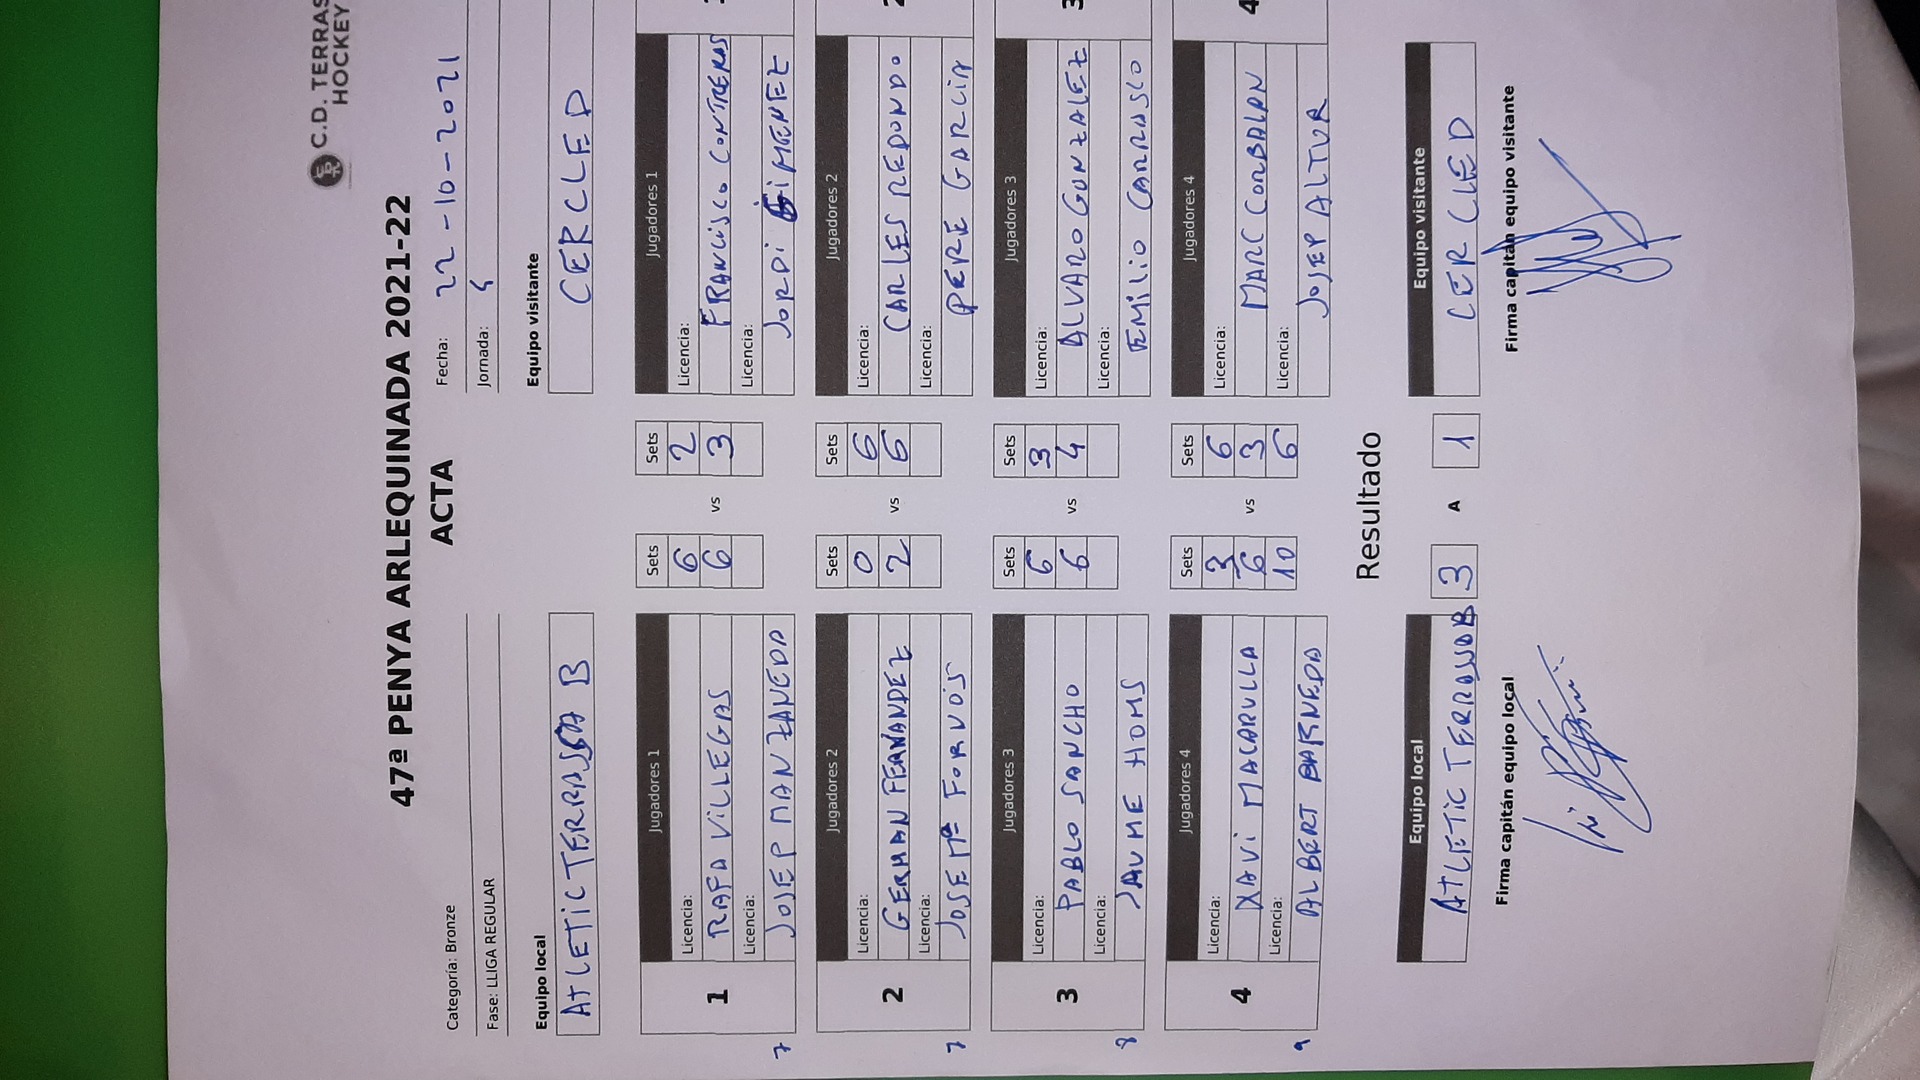 C.D. TERRAS
HOCKEY
47ª PENYA ARLEQUINADA 2021-22
ACTA
Categoría: Bronze
Fecha: 22-10-2021
Fase: LLIGA REGULAR
Jornada:
Equipo local
Equipo visitante
ATLETIC TERRASSA B
CERCLE D
1
Jugadores 1
Sets
Sets
Jugadores 1
Licencia:
6
2
Licencia:
RAFA VILLEGAS
6
vs
3
FRANCISCO CONTRERAS
Licencia:
Licencia:
JOSEP MANZANEDA
JORDI GIMENEZ
7
2
Jugadores 2
Sets
Sets
Jugadores 2
2
Licencia:
0
6
Licencia:
GERMAN FERNANDEZ
2
vs
6
CARLES REDONDO
Licencia:
Licencia:
JOSE Mª
PERE GARCIA
7
3
Jugadores 3
Sets
Sets
Jugadores 3
3
Licencia:
6
3
Licencia:
PABLO SANCHO
6
vs
4
ALVARO GONZALEZ
Licencia:
Licencia:
JAUME HOMS
EMILIO CARRASCO
8
4
Jugadores 4
Sets
Sets
Jugadores 4
4
Licencia:
3
6
Licencia:
XAVI MACARULLA
6
vs
3
MARC CORBALAN
Licencia:
10
6
Licencia:
ALBERT BARNEDA
JOSEP ALTUR
9
Resultado
Equipo local
Equipo visitante
ATLETIC TERRASSA B
3
A
1
CERCLE D
Firma capitán equipo local
Firma capitán equipo visitante